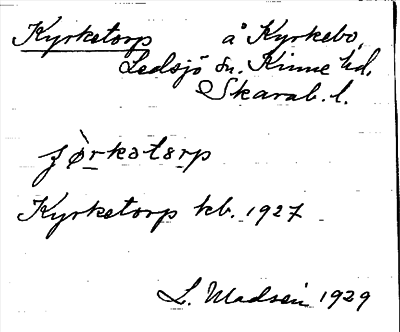 Kyrketorp å Kyrkebo,
Ledsjö sn. Kinne hd.
Skarab. l.
Kyrketorp kb. 1927
L. Madsén 1929